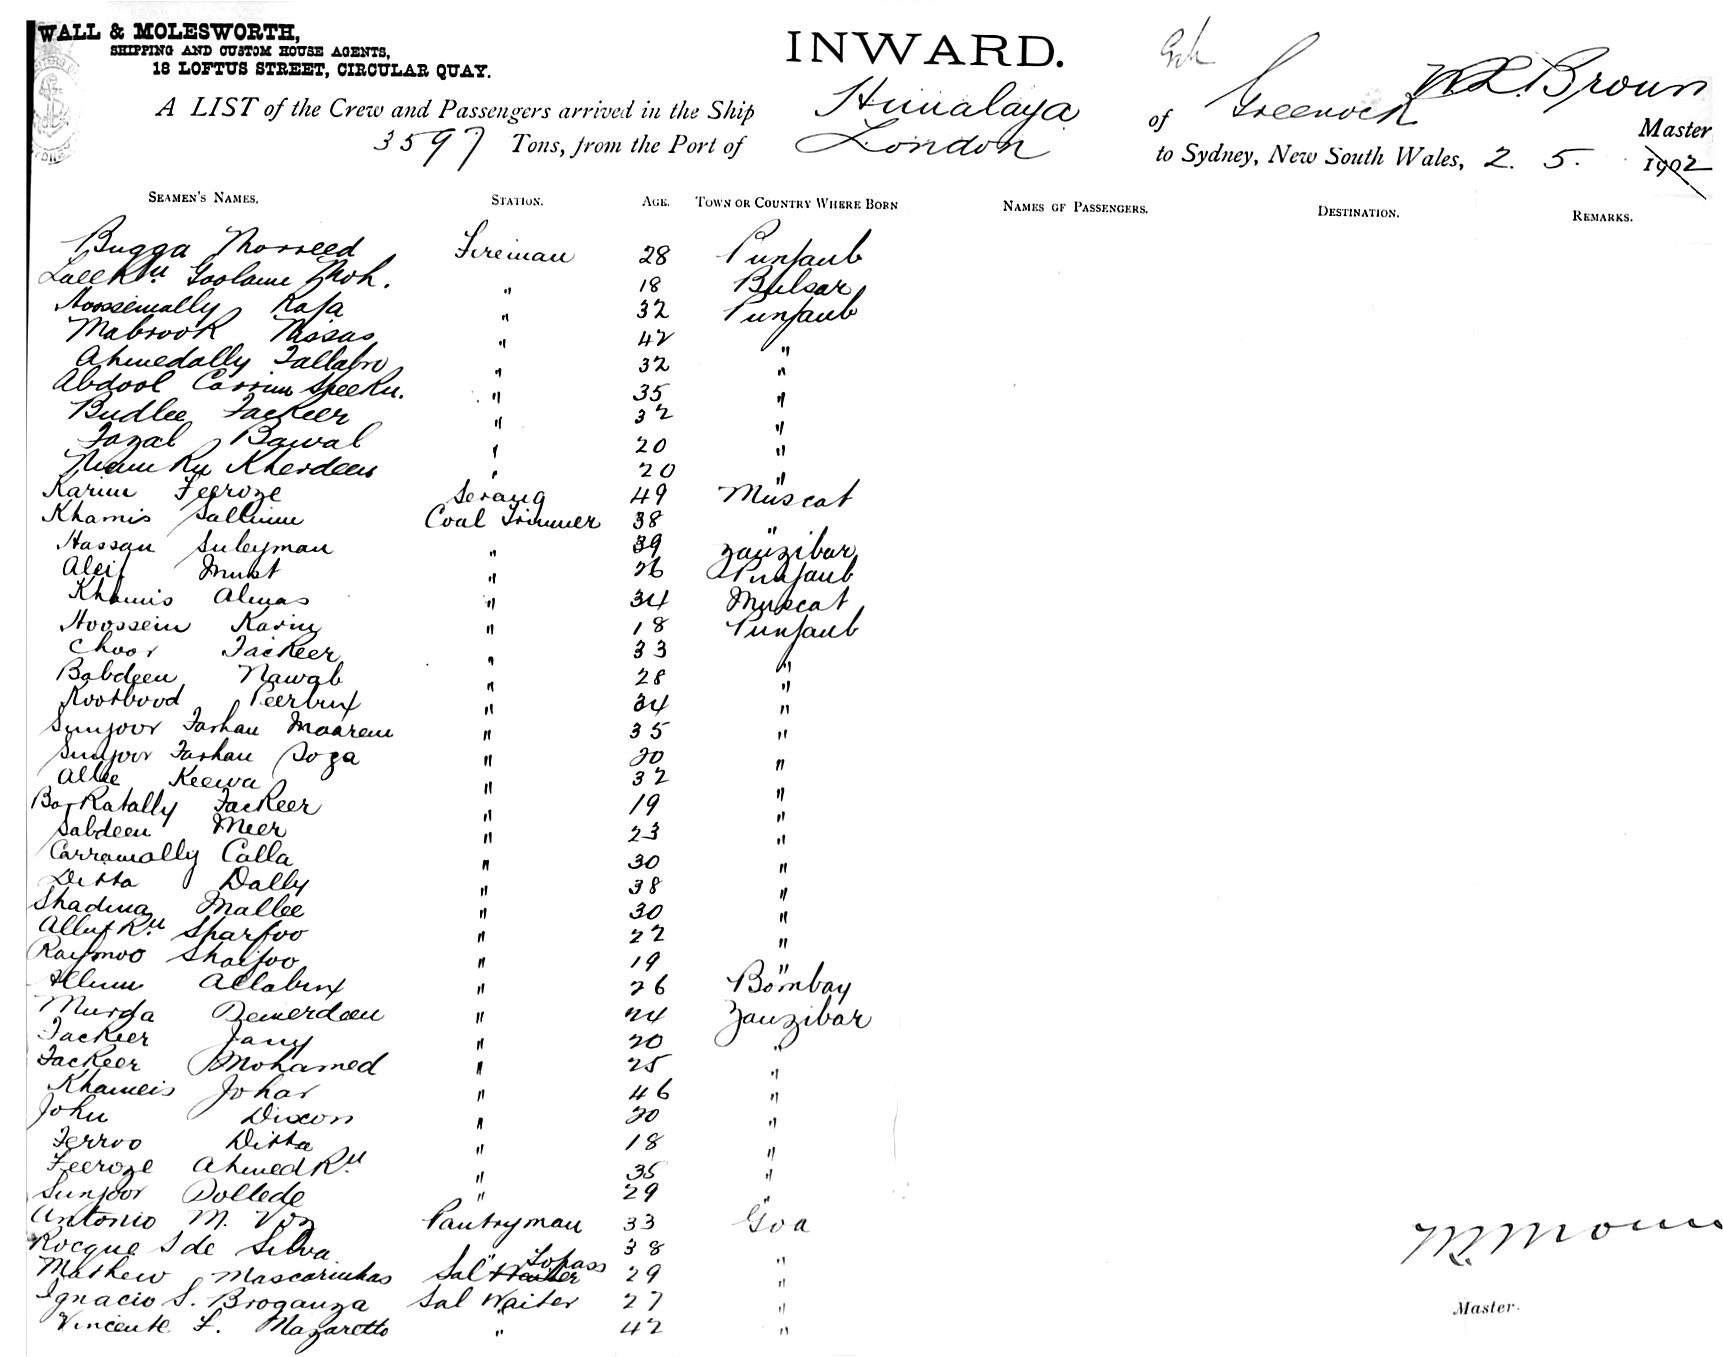 WALL & MOLESWORTH,
SHIPPING AND CUSTOM HOUSE AGENTS,
18 LOFTUS STREET, CIRCULAR QUAY.
INWARD.
A LIST of the Crew and Passengers arrived in the Ship Himalaya of Greenock W.L. Broun Master
3597 Tons, from the Port of London to Sydney, New South Wales, 2. 5. 1902
SEAMEN'S NAMES. STATION. AGE. TOWN OR COUNTRY WHERE BORN NAMES OF PASSENGERS. DESTINATION. REMARKS.
Bugga Fireman 28 Punjaub
Goolam Moh. " 18 Bulsar
Hoosseinally Raja " 32 Punjaub
Mabrook Nissas " 42 "
Ahmedally " 32 "
Abdool Carrim " 35 "
Budlee Fackeer " 32 "
Fazal Bawal " 20 "
Kherdeen " 20 "
Karim Feeroze Serang 49 Muscat
Khamis Sallim Coal Trimmer 38 "
Hassan Suleyman " 39 Zanzibar
Must " 26 Punjaub
Khamis Almas " 34 Muscat
Hoossein Karim " 18 Punjaub
Choor Fackeer " 33 "
Babdeen Nawab " 28 "
Kootbood Peerbux " 34 "
Sunjoor Farhan " 35 "
Sunjoor Farhan Soga " 20 "
Allee Keewa " 32 "
Barkatally Fackeer " 19 "
Sabdeen Meer " 23 "
Carramally Calla " 30 "
Ditta Dally " 38 "
Mallee " 30 "
Sharfoo " 22 "
Raymoo " 19 "
Illum Allabux " 26 Bombay
Murga " 24 Zanzibar
Fackeer Jany " 20 "
Fackeer Mohamed " 25 "
Khameis Johar " 46 "
John Dixon " 20 "
Ferroo Ditta " 18 "
Feeroze " 35 "
Sunjoor " 29 "
Antonio M. Vaz Pantryman 33 Goa
Rocque S de Silva " 38
Mathew Mascarinhas Sal Topass 29 "
Ignacio S. Broganza Sal Waiter 27 "
Vincente F. Mazaretto " 42 "
Master.